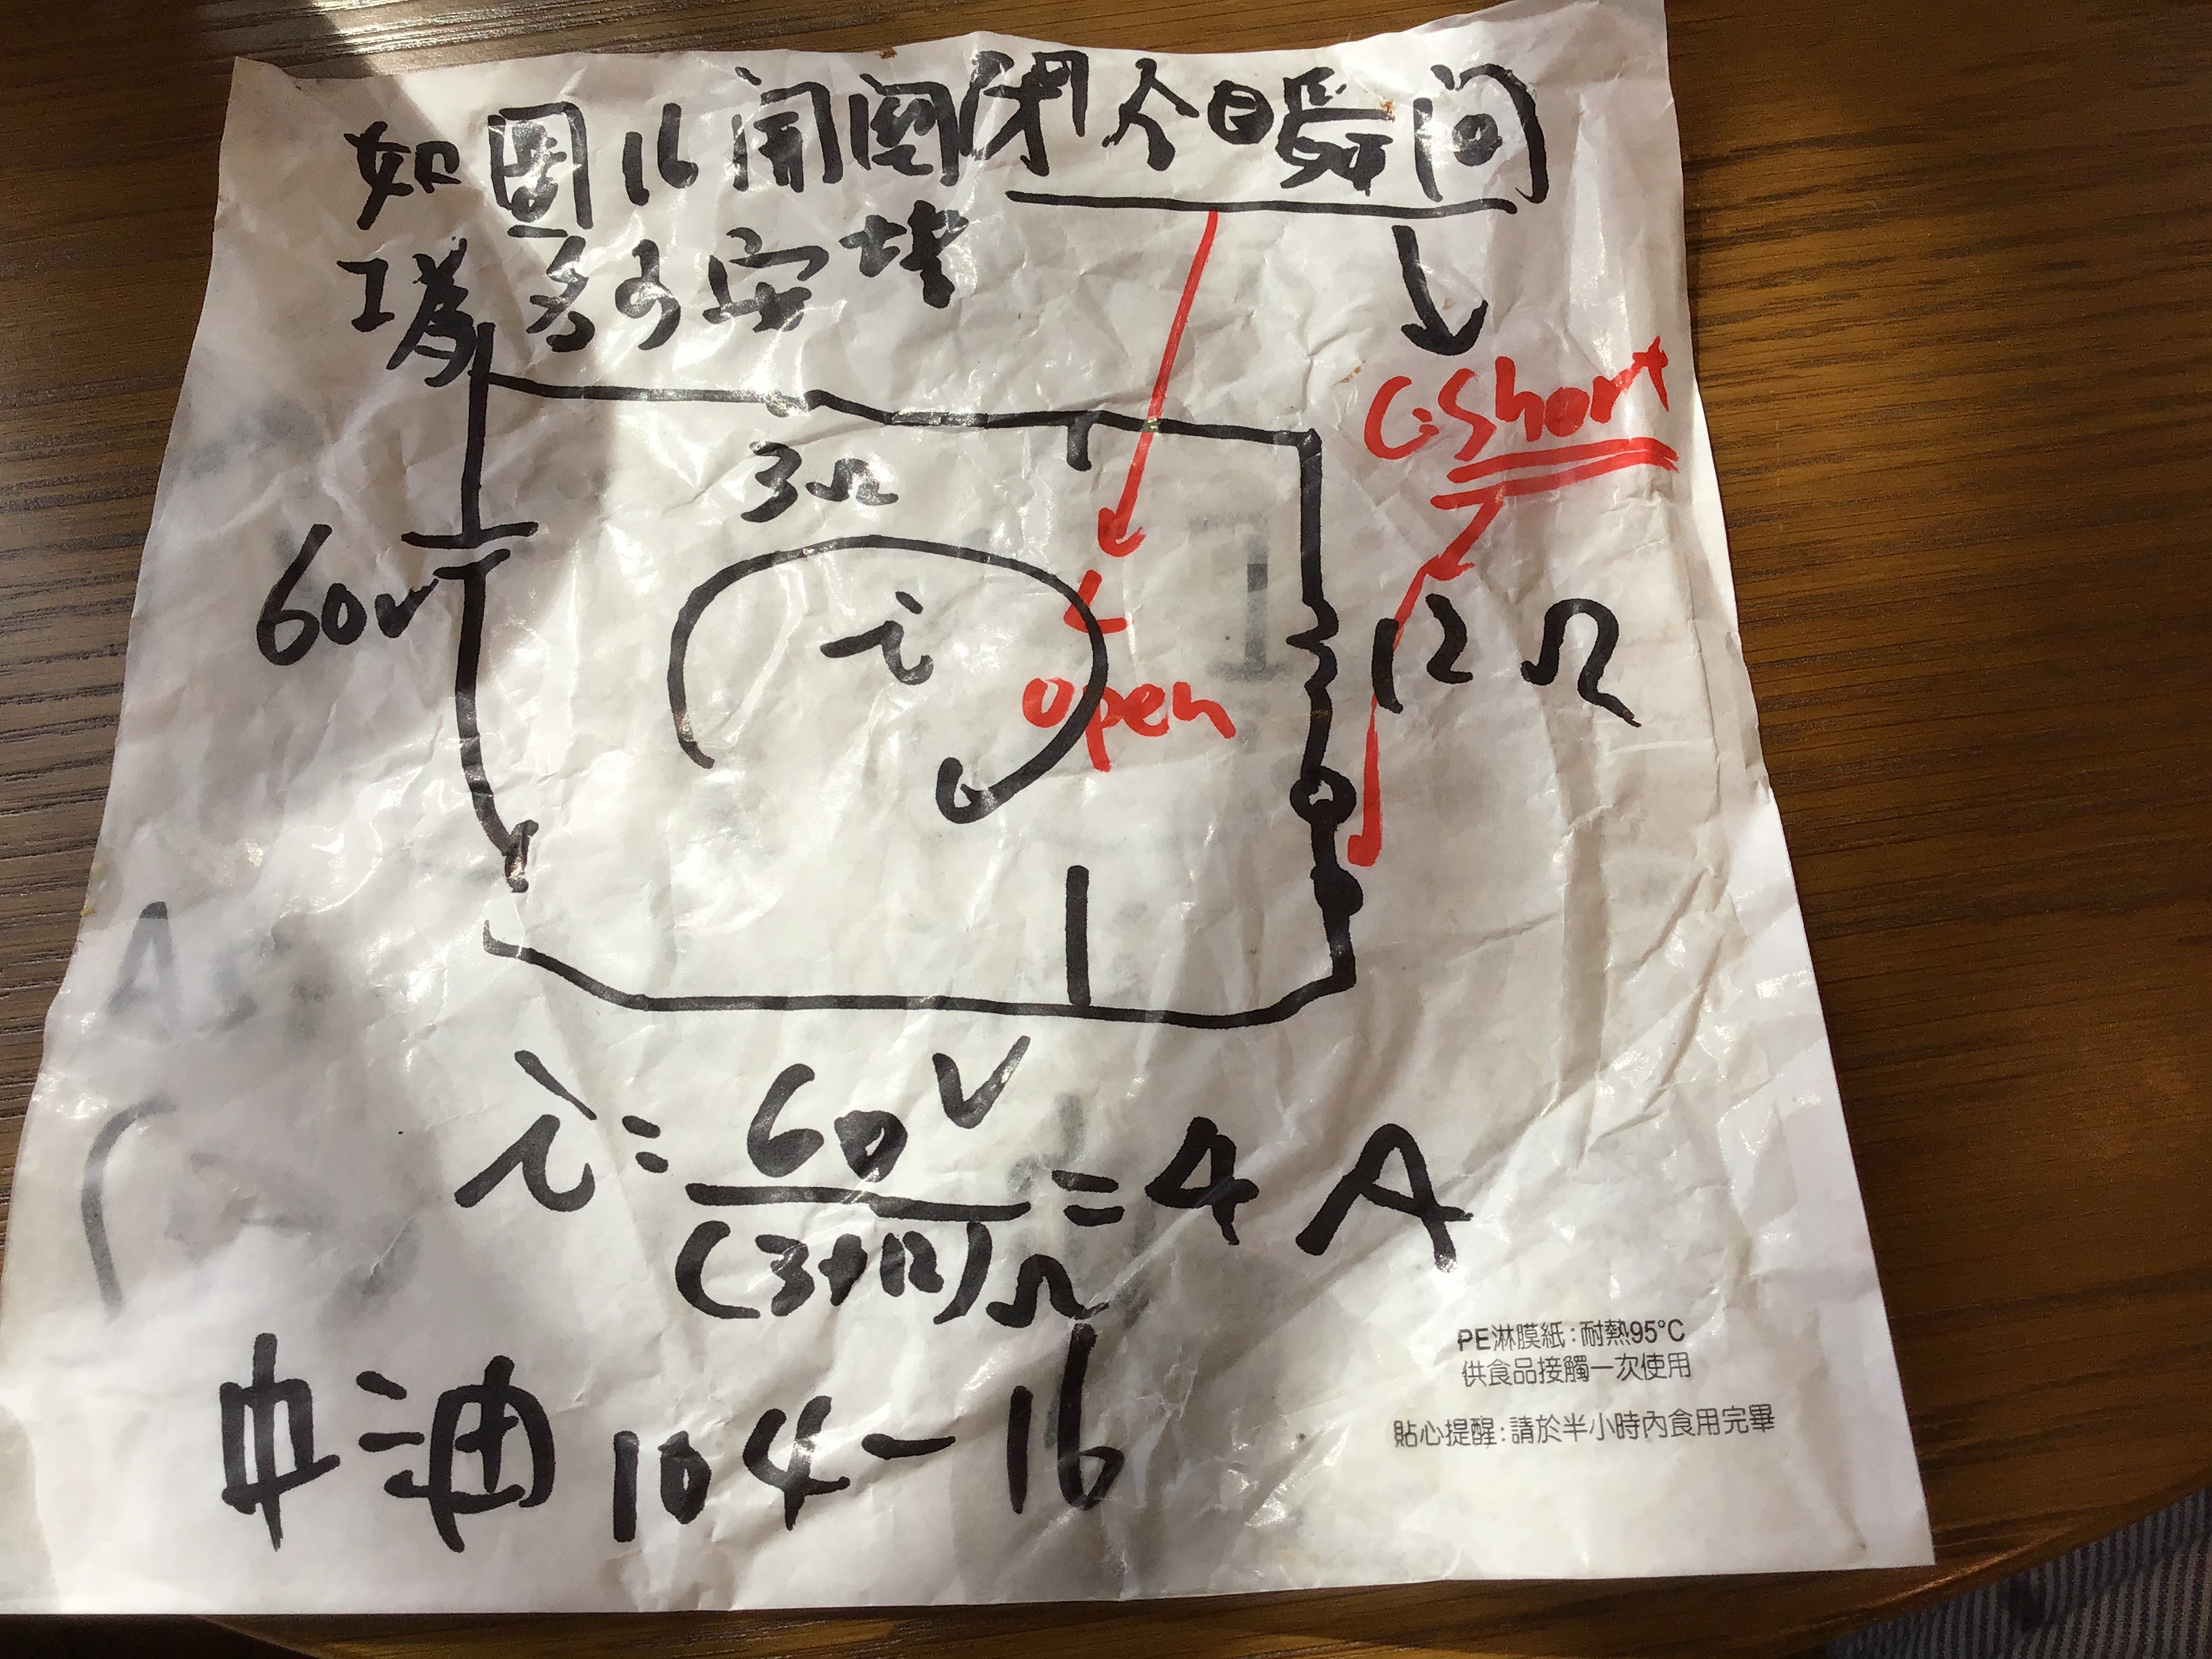 如圖16開關閉合瞬間
I為多少安培
3Ω
C:Short
60V
i
L
open
12Ω
i=60V/(3+12)Ω=4A
中油104-16
PE淋膜紙:耐熱95°C
供食品接觸一次使用
貼心提醒:請於半小時內食用完畢